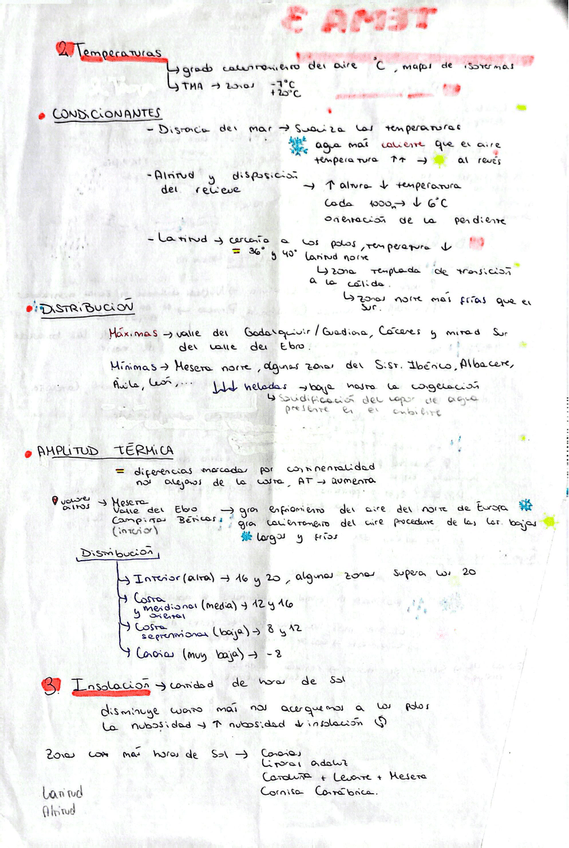 TEMA 3
2. Temperaturas
↳ grado calentamiento del aire °C, mapas de isotermas
↳ TMA → zonas -7°C
+20°C
CONDICIONANTES
- Distancia del mar → Suaviza las temperaturas
agua más caliente que el aire
temperatura ↑↑ → al revés
- Altitud y disposición
del relieve → ↑ altura ↓ temperatura
Cada 1000m → ↓ 6°C
orientación de la pendiente
- Latitud → cercanía a los polos, temperatura ↓
= 36° y 40° latitud norte
↳ zona templada de transición
a la cálida.
↳ zonas norte más frías que el
sur.
DISTRIBUCIÓN
Máximas → valle del Guadalquivir / Guadiana, Cáceres y mitad Sur
del valle del Ebro.
Mínimas → Meseta norte, algunas zonas del Sist. Ibérico, Albacete,
Ávila, León,... ↓↓↓ heladas → baja hasta la congelación
↳ Solidificación del vapor de agua
presente en el ambiente
AMPLITUD TÉRMICA
= diferencias marcadas por continentalidad
nos alejamos de la costa, AT → aumenta
valores
altos → Meseta
Valle del Ebro → gran enfriamiento del aire del norte de Europa
Campiñas Béticas, gran calentamiento del aire procedente de las lat. bajas
(interior) largos y fríos
Distribución
↳ Interior (alta) → 16 y 20, algunas zonas supera los 20
↳ Costa
y meridional (media) → 12 y 16
y oriental
↳ Costa
septentrional (baja) → 8 y 12
↳ Canarias (muy baja) → -8
3. Insolación → cantidad de horas de Sol
disminuye cuanto más nos acerquemos a los polos
La nubosidad → ↑ nubosidad ↓ insolación
Zonas con más horas de Sol → Canarias
Litoral andaluz
Cataluña + Levante + Meseta
Cornisa Cantábrica.
Latitud
Altitud